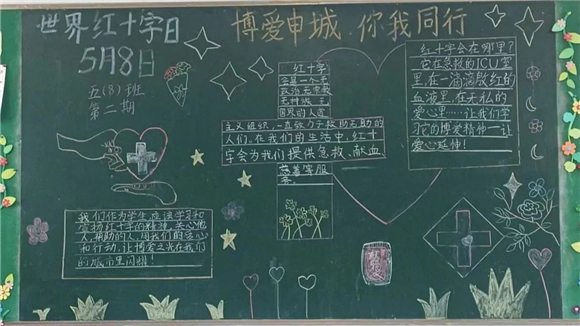 世界红十字日
5月8日
五(8)班
第二期
博爱申城,你我同行
红十字
会是一个
主义组织,一直致力于救助无助的
人们。在我们的生活中,红十
字会为我们提供急救、献血
红十字会在哪里?
它在急救的ICU室
里,在一滴滴殷红的
血液里,在无私的
爱心里……让我们学
习它的博爱精神,让
爱心延伸!
我们作为学生,应该学习和
宣扬红十字的精神,关心他
人,帮助别人,用我们的爱心
和行动,让博爱之光在我们
的城市里闪耀!